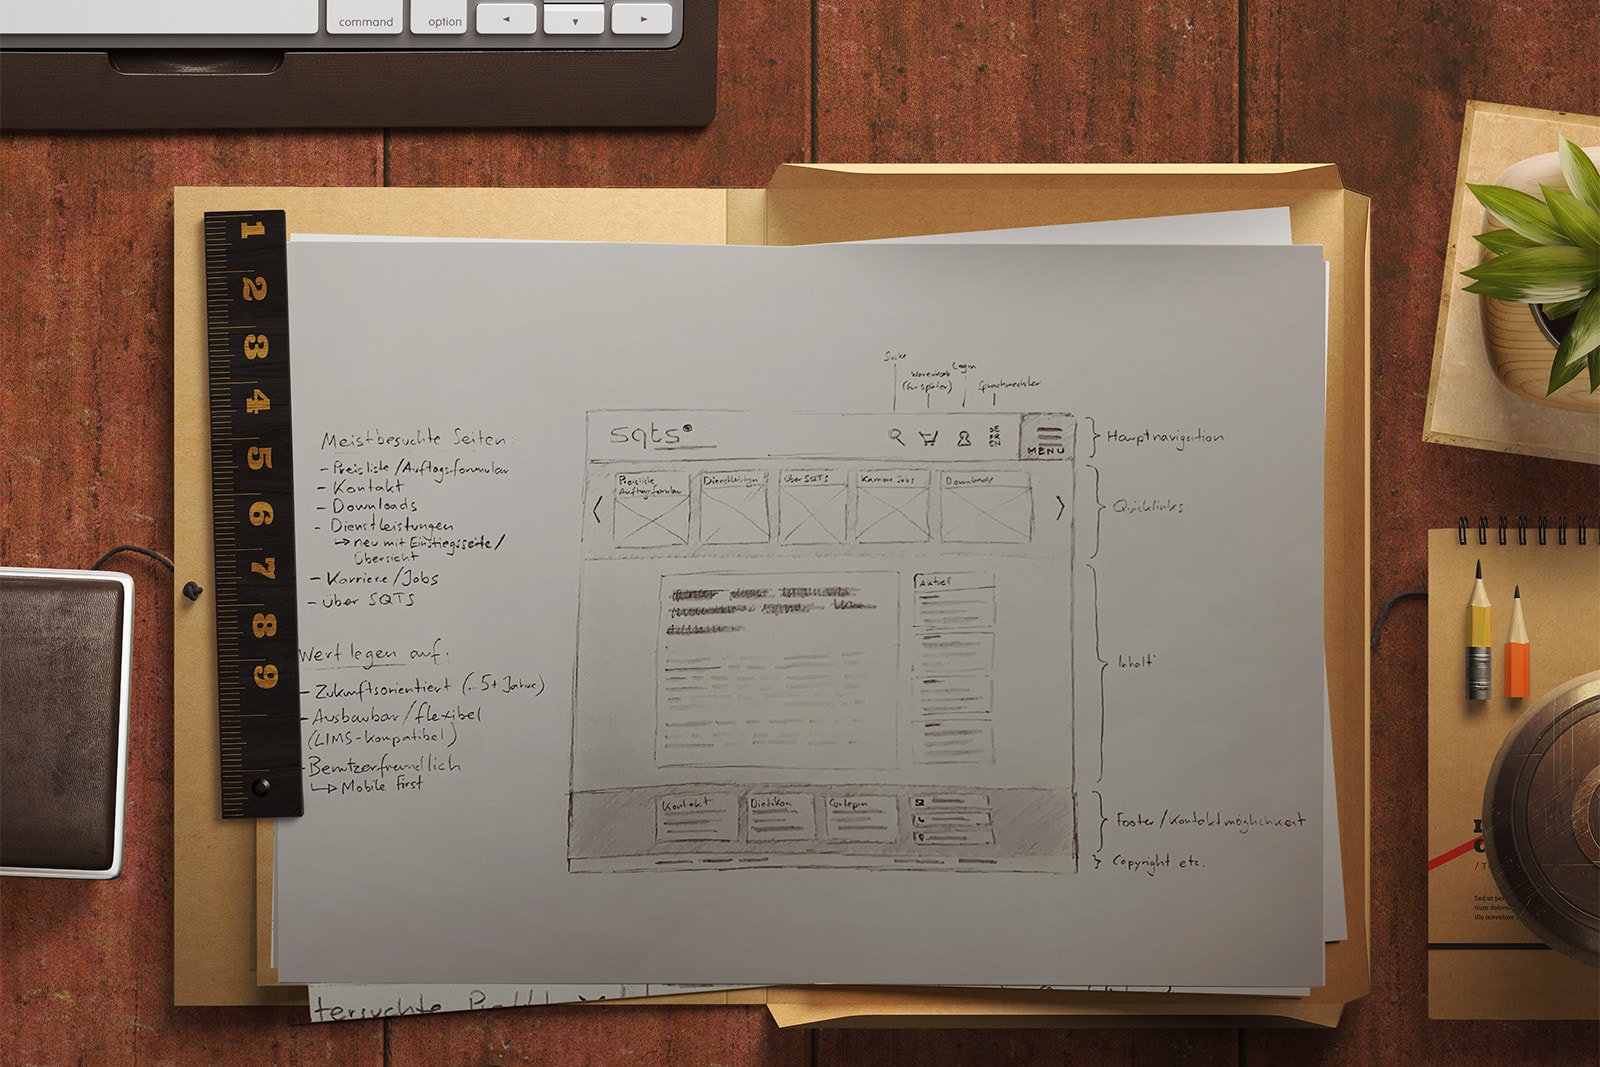 command
option
1
2
3
4
5
6
7
8
9
Meistbesuchte Seiten:
- Preisliste/Auftagsformular
- Kontakt
- Downloads
- Dienstleistungen
neu mit Einstiegsseite/
Übersicht
- Karriere/Jobs
- über SQTS
Wert legen auf:
- Zukunftsorientiert (5+ Jahre)
- Ausbaubar/flexibel
(LIMS-kompatibel)
- Benutzerfreundlich
Mobile First
Suche
Login
(für später)
Sprachwechsler
sqts
DE
FR
EN
MENU
Hauptnavigation
Preisliste
Auftragsformular
Dienstleistgn
über SQTS
Karriere Jobs
Downloads
Quicklinks
Aktuell
Inhalt
Kontakt
Dietikon
Footer/Kontaktmöglichkeit
Copyright etc.
tersuchte
Sed ut per
tium dolore
illo inventore